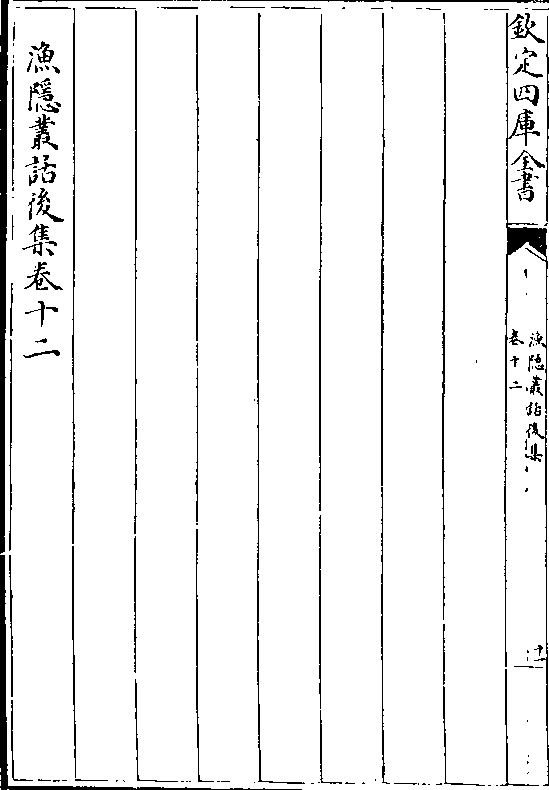 欽定四庫全書
漁隠叢話後集
卷十二
十一
漁隱叢話後集卷十二